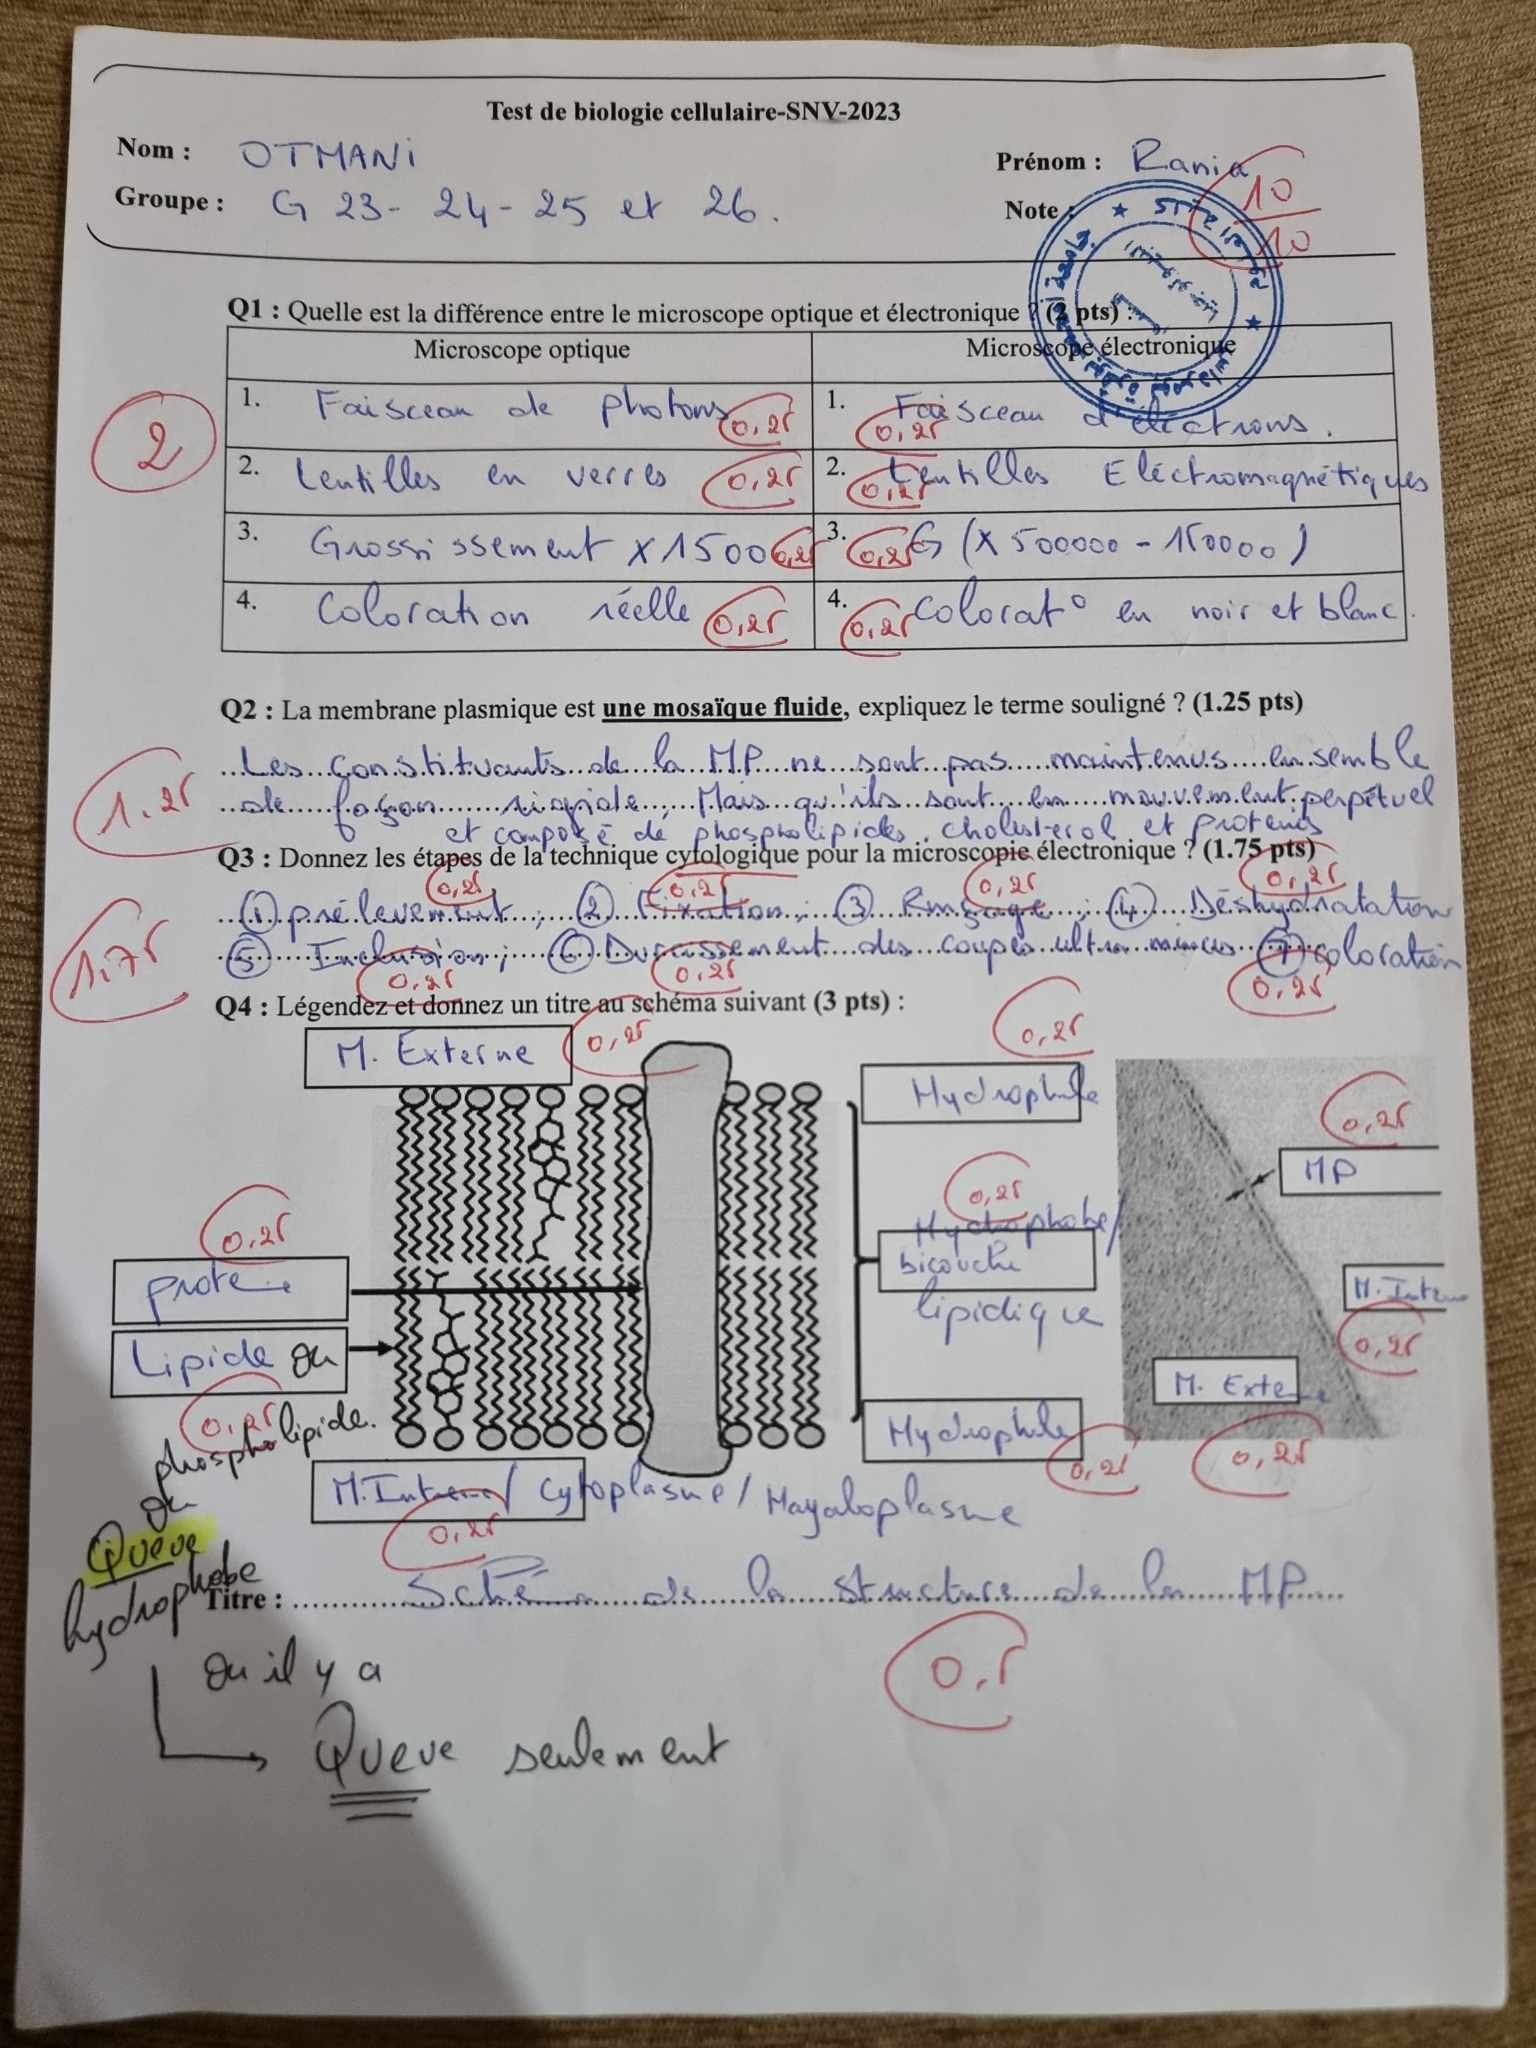 Test de biologie cellulaire-SNV-2023
Nom : OTMANi
Prénom : Rania
Groupe : G 23- 24-25 et 26.
Note : 10/10
Q1 : Quelle est la différence entre le microscope optique et électronique ? (2 pts) :
Microscope optique
Microscope électronique
1. Faisceau de photons 0,25
1. 0,25 Faisceau d'électrons.
2
2. Lentilles en verres 0,25
2. 0,25 Lentilles Electromagnétiques
3. Grossissement x1500 0,25
3. 0,25 G (x 500000 - 150000)
4. Coloration réelle 0,25
4. 0,25 Colorat° en noir et blanc.
Q2 : La membrane plasmique est une mosaïque fluide, expliquez le terme souligné ? (1.25 pts)
1.25
Les constituants de la MP ne sont pas maintenus ensemble
de façon rigide, Mais qu'ils sont en mouvement perpétuel
et composé de phospholipides, cholesterol et proteines
Q3 : Donnez les étapes de la technique cytologique pour la microscopie électronique ? (1.75 pts)
0,25 0,25 0,25 0,25
① prélevement ; ② Fixation ; ③ Rinsage ; ④ Déshydratation
1.75
⑤ Inclusion ; ⑥ Durcissement des coupes ultra minces ⑦ coloration
0,25 0,25 0,25
Q4 : Légendez et donnez un titre au schéma suivant (3 pts) :
M. Externe 0,25
0,25
Hydrophile
0,25
MP
0,25
Hydrophobe/
bicouche
lipidique
0,25
proteine
M. Interne
0,25
Lipide ou
0,25
phospholipide.
ou
Queue
hydrophobe
M. Externe
0,25
Hydrophile
0,25
M. Interne / Cytoplasme / Hayaloplasme
0,25
Titre : Schéma de la structure de la MP
0,5
ou il y a
Queue seulement